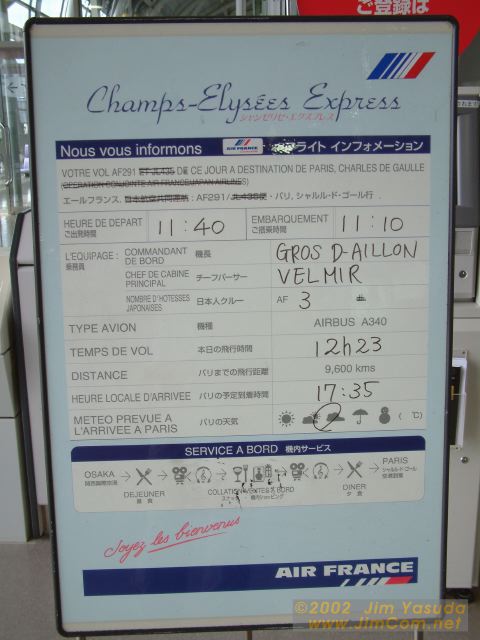 ご登録は
Champs-Elysées Express
シャンゼリゼ・エクスプレス
Nous vous informons AIR FRANCE フライト インフォメーション
VOTRE VOL AF291 ET JL435 DE CE JOUR A DESTINATION DE PARIS, CHARLES DE GAULLE
(OPERATION CONJOINTE AIR FRANCE/JAPAN AIRLINES)
エールフランス、日本航空共同運航：AF291/JL435便・パリ、シャルル・ド・ゴール行
HEURE DE DEPART 11:40 EMBARQUEMENT 11:10
ご出発時間 ご搭乗時間
L'EQUIPAGE : COMMANDANT DE BORD 機長 GROS D-AILLON
乗務員 CHEF DE CABINE PRINCIPAL チーフパーサー VELMIR
NOMBRE D'HOTESSES JAPONAISES 日本人クルー AF 3
TYPE AVION 機種 AIRBUS A340
TEMPS DE VOL 本日の飛行時間 12h23
DISTANCE パリまでの飛行距離 9,600 kms
HEURE LOCALE D'ARRIVEE パリの予定到着時間 17:35
METEO PREVUE A L'ARRIVEE A PARIS パリの天気 ( ℃)
SERVICE A BORD 機内サービス
OSAKA PARIS
関西国際空港 シャルル・ド・ゴール空港到着
DEJEUNER COLLATION VENTES A BORD DINER
昼食 スナック 機内ショッピング 夕食
Soyez les bienvenus
AIR FRANCE
©2002 Jim Yasuda
www.JimCom.net